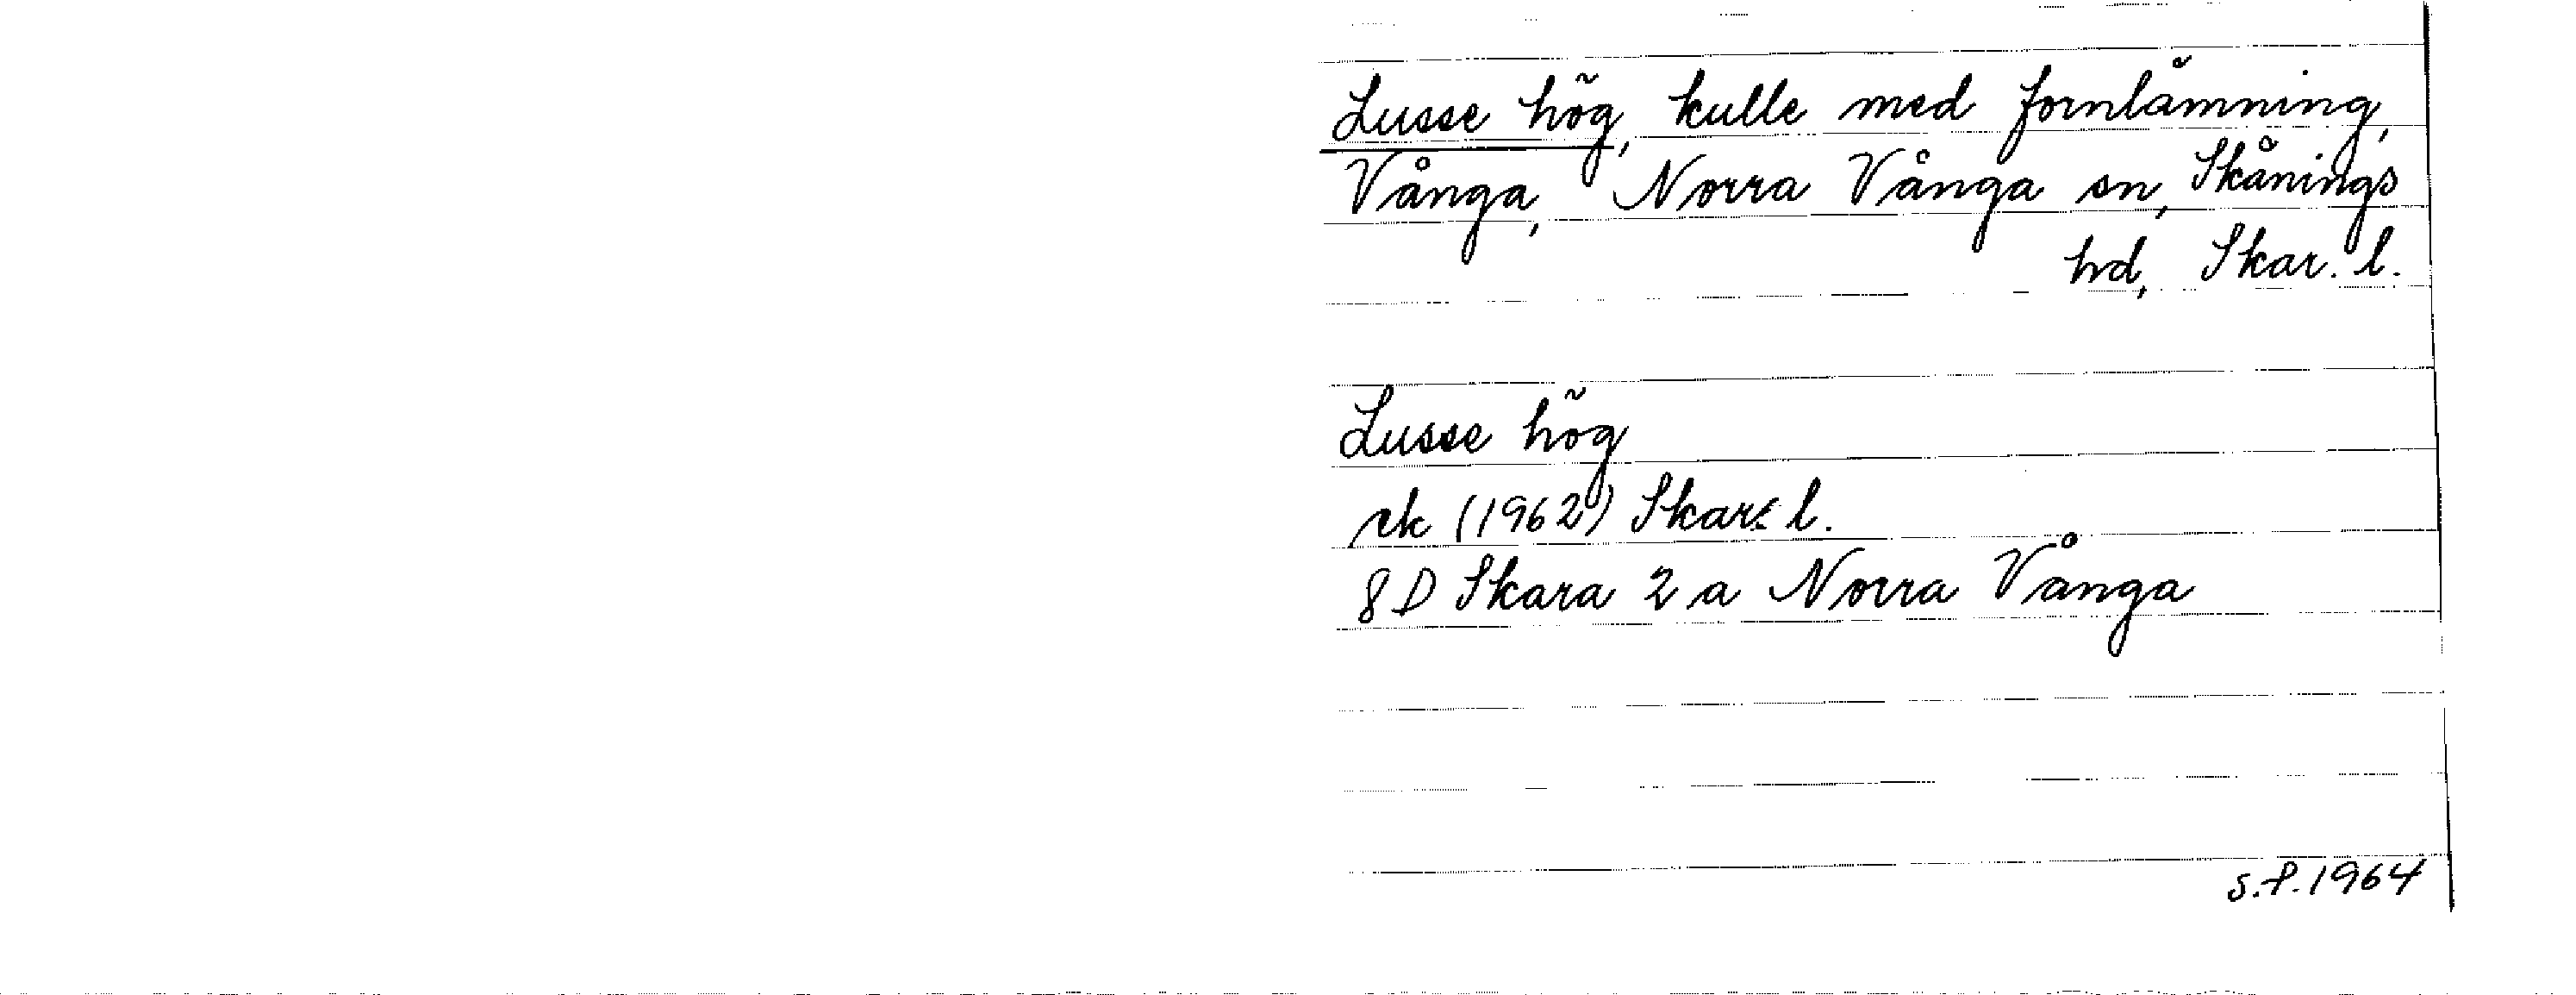 Lusse hög, kulle med fornlämning,
Vånga, Norra Vånga sn, Skånings
hd, Skar. l.
Lusse hög
rk (1962) Skar. l.
8 D Skara 2 a Norra Vånga
S.P. 1964